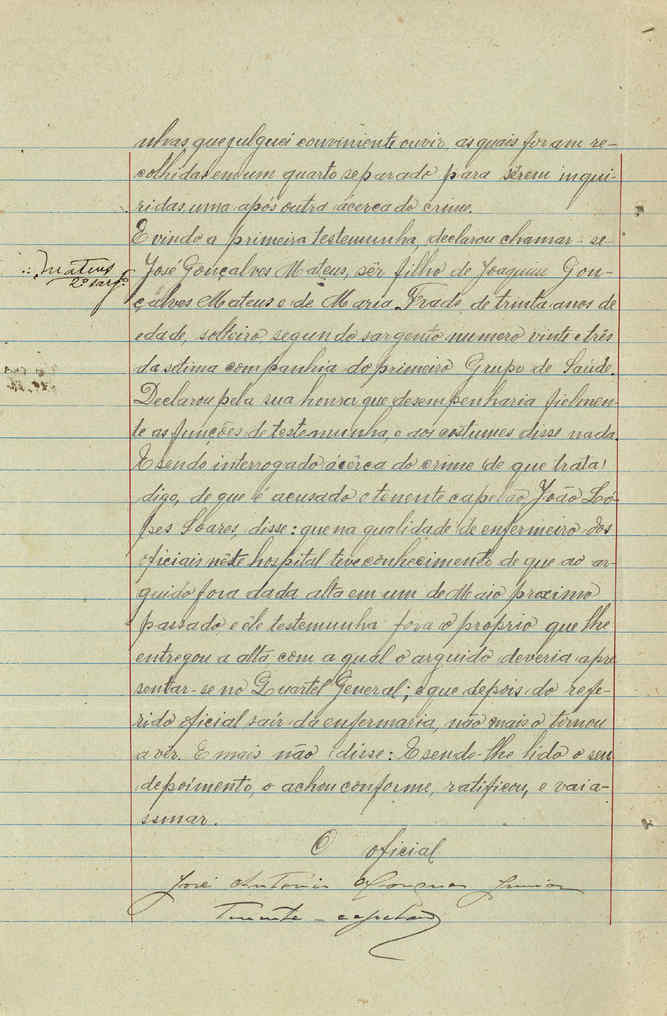 nhas que julguei conviniente ouvir, as quais foram re-
colhidas em um quarto separado para sêrem inqui-
ridas, uma após outra ácerca do crime.
E vindo a primeira testemunha, declarou chamar-se
Mateus
2º sargº
José Gonçalves Mateus, sêr filho de Joaquim Gon-
çalves Mateus e de Maria Frade, de trinta anos de
edade, solteiro, segundo sargento numero vinte e três
da sétima companhia do primeiro Grupo de Saúde.
Declarou pela sua honra que desempenharia fielmen-
te as funções de testemunha, e aos costumes disse nada.
E sendo interrogado ácêrca do crime (de que trata)
digo, de que é acusado o tenente capelão João Lo-
pes Soares, disse: que na qualidade de enfermeiro dos
oficiais nêste hospital teve conhecimento de que ao ar-
guido fora dada alta em um de Maio proximo
passado e êle testemunha fora o proprio que lhe
entregou a alta com a qual o arguido deveria apre
sentar-se no Quartel General; e que depois do refe-
rido oficial sair da enfermaria, não mais o tornou
a vêr. E mais não disse: E sendo-lhe lido o seu
depoimento, o achou conforme, ratificou, e vai a-
ssinar.
O oficial
José António Junior
Tenente - capelão